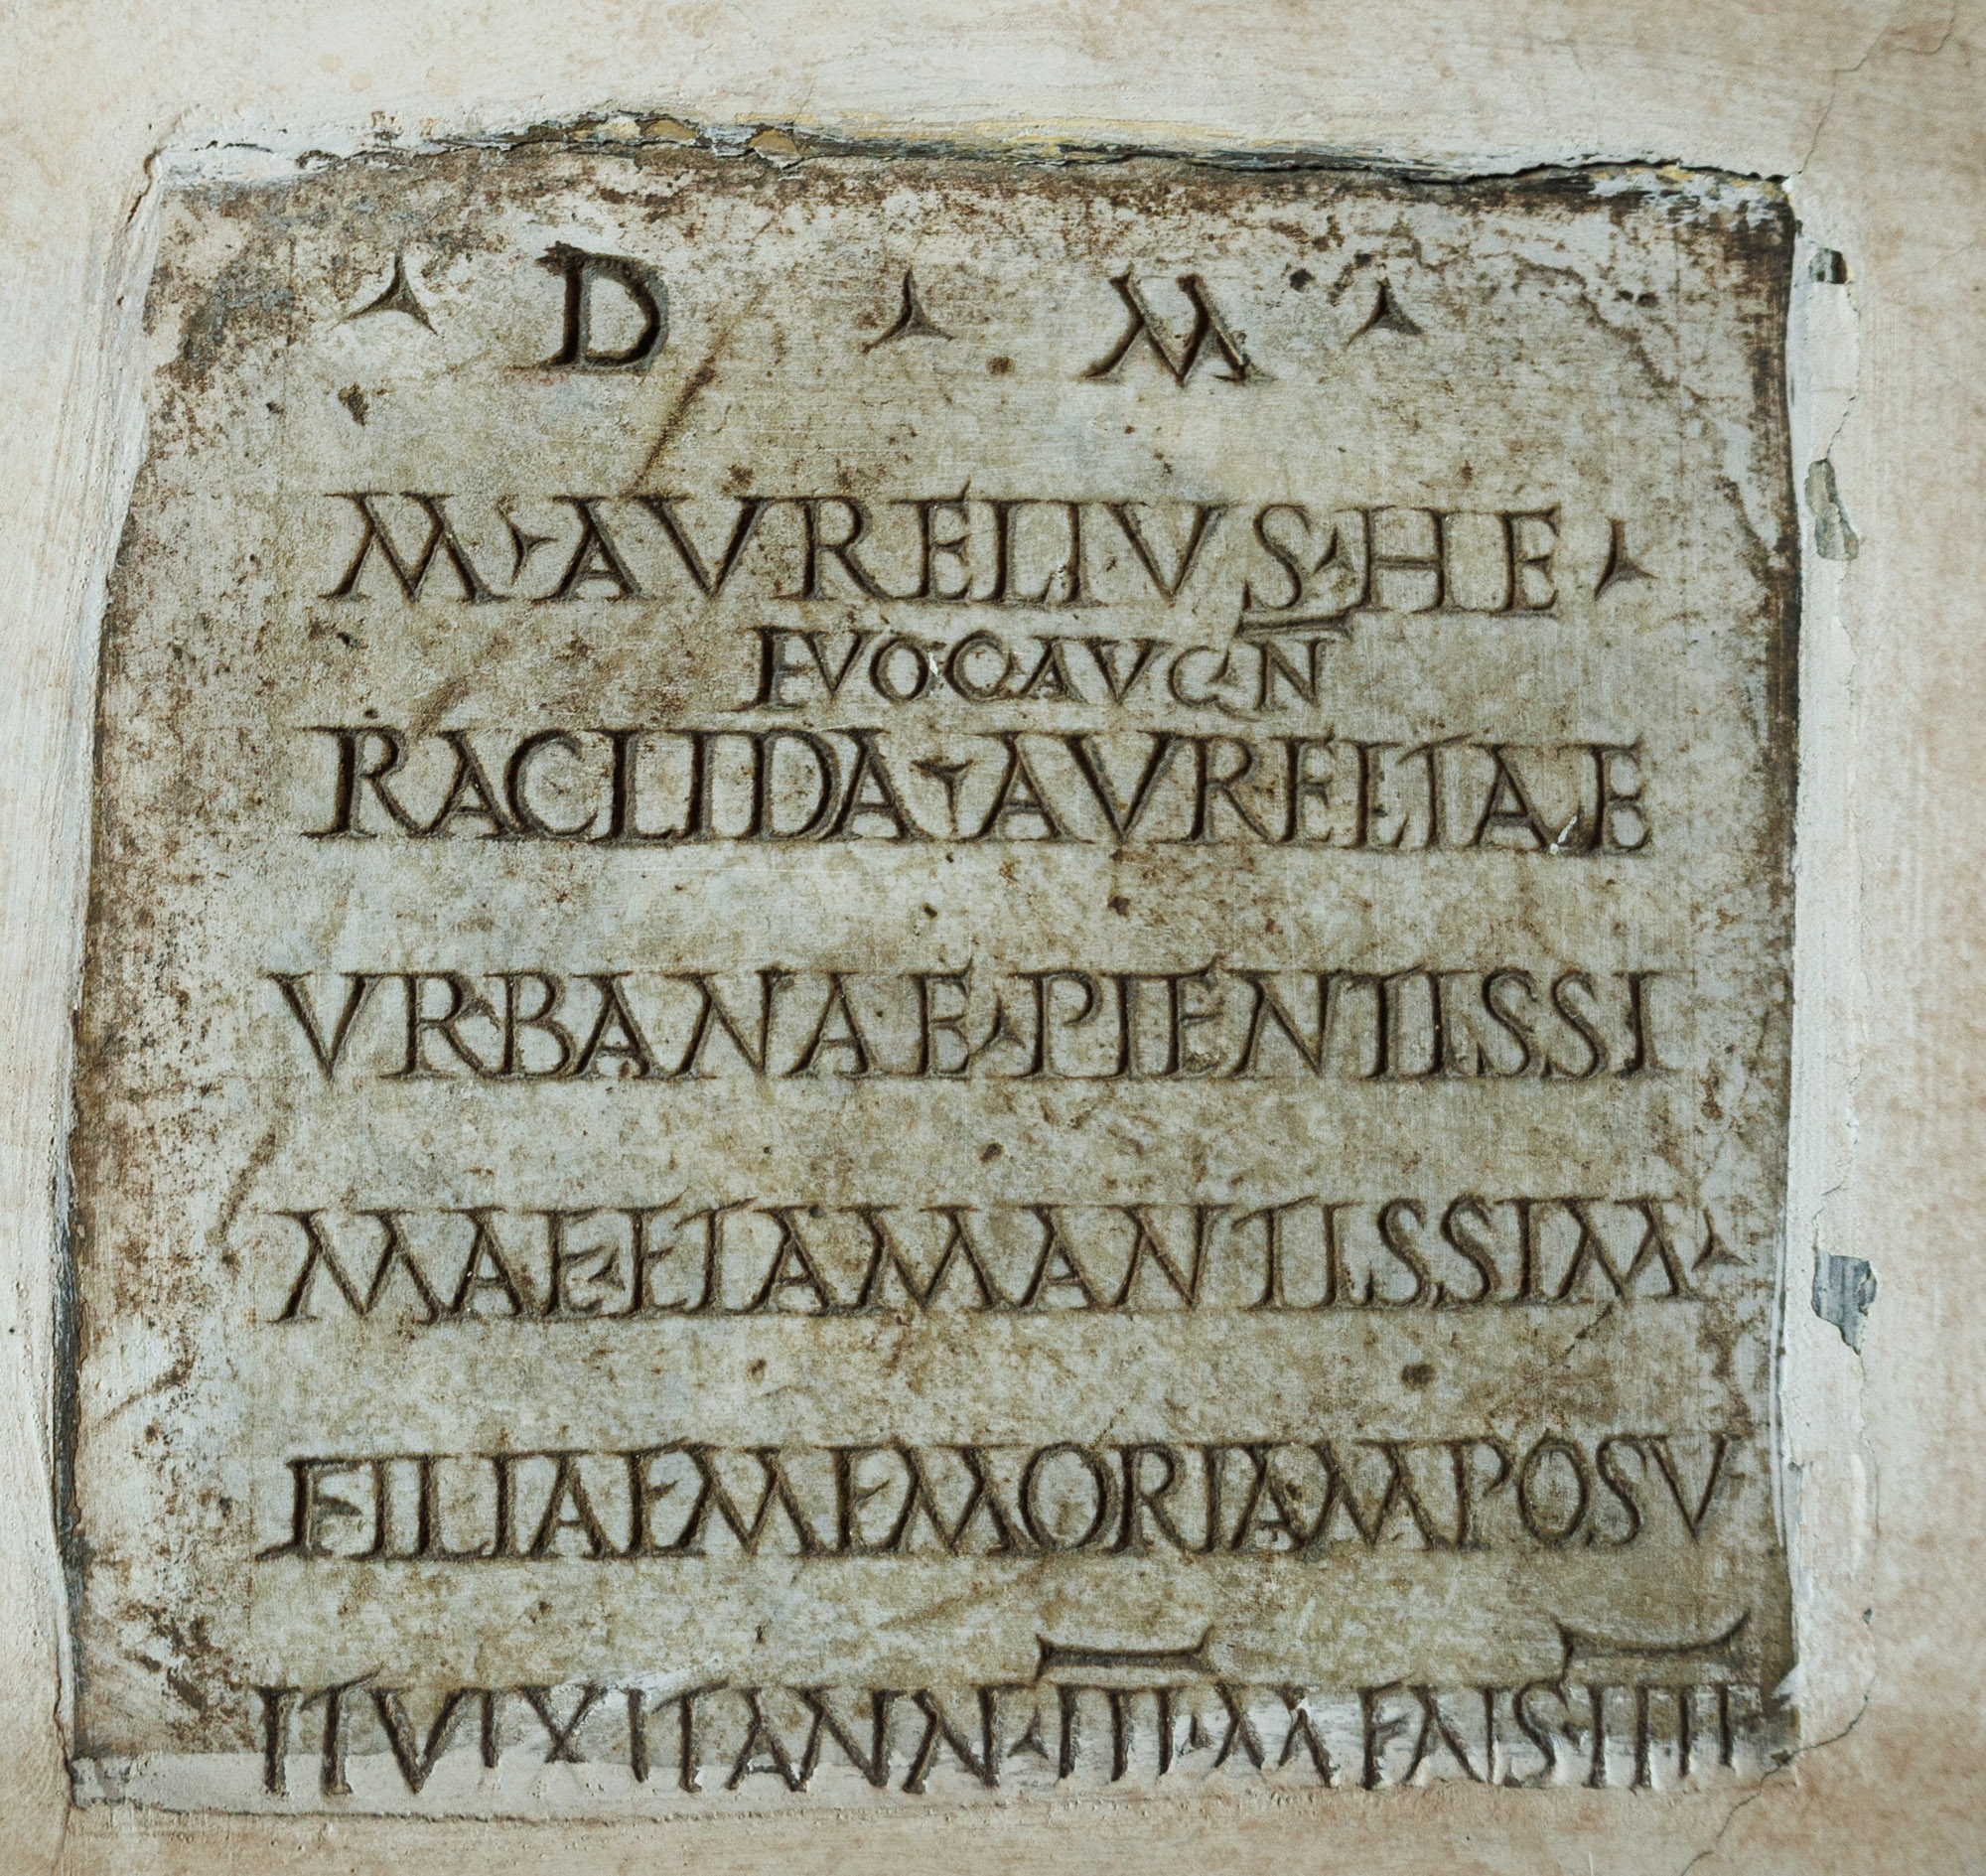 · D · M ·
M·AVRELIVS·HE·
EVOC·AVG·N
RACLIDA·AVRELIAE
VRBANAE·PIENTISSI
MAE·ETAMANTISSIM·
FILIAEMEMORIAMPOSV
ITVIXITANN·III·MENS·IIII